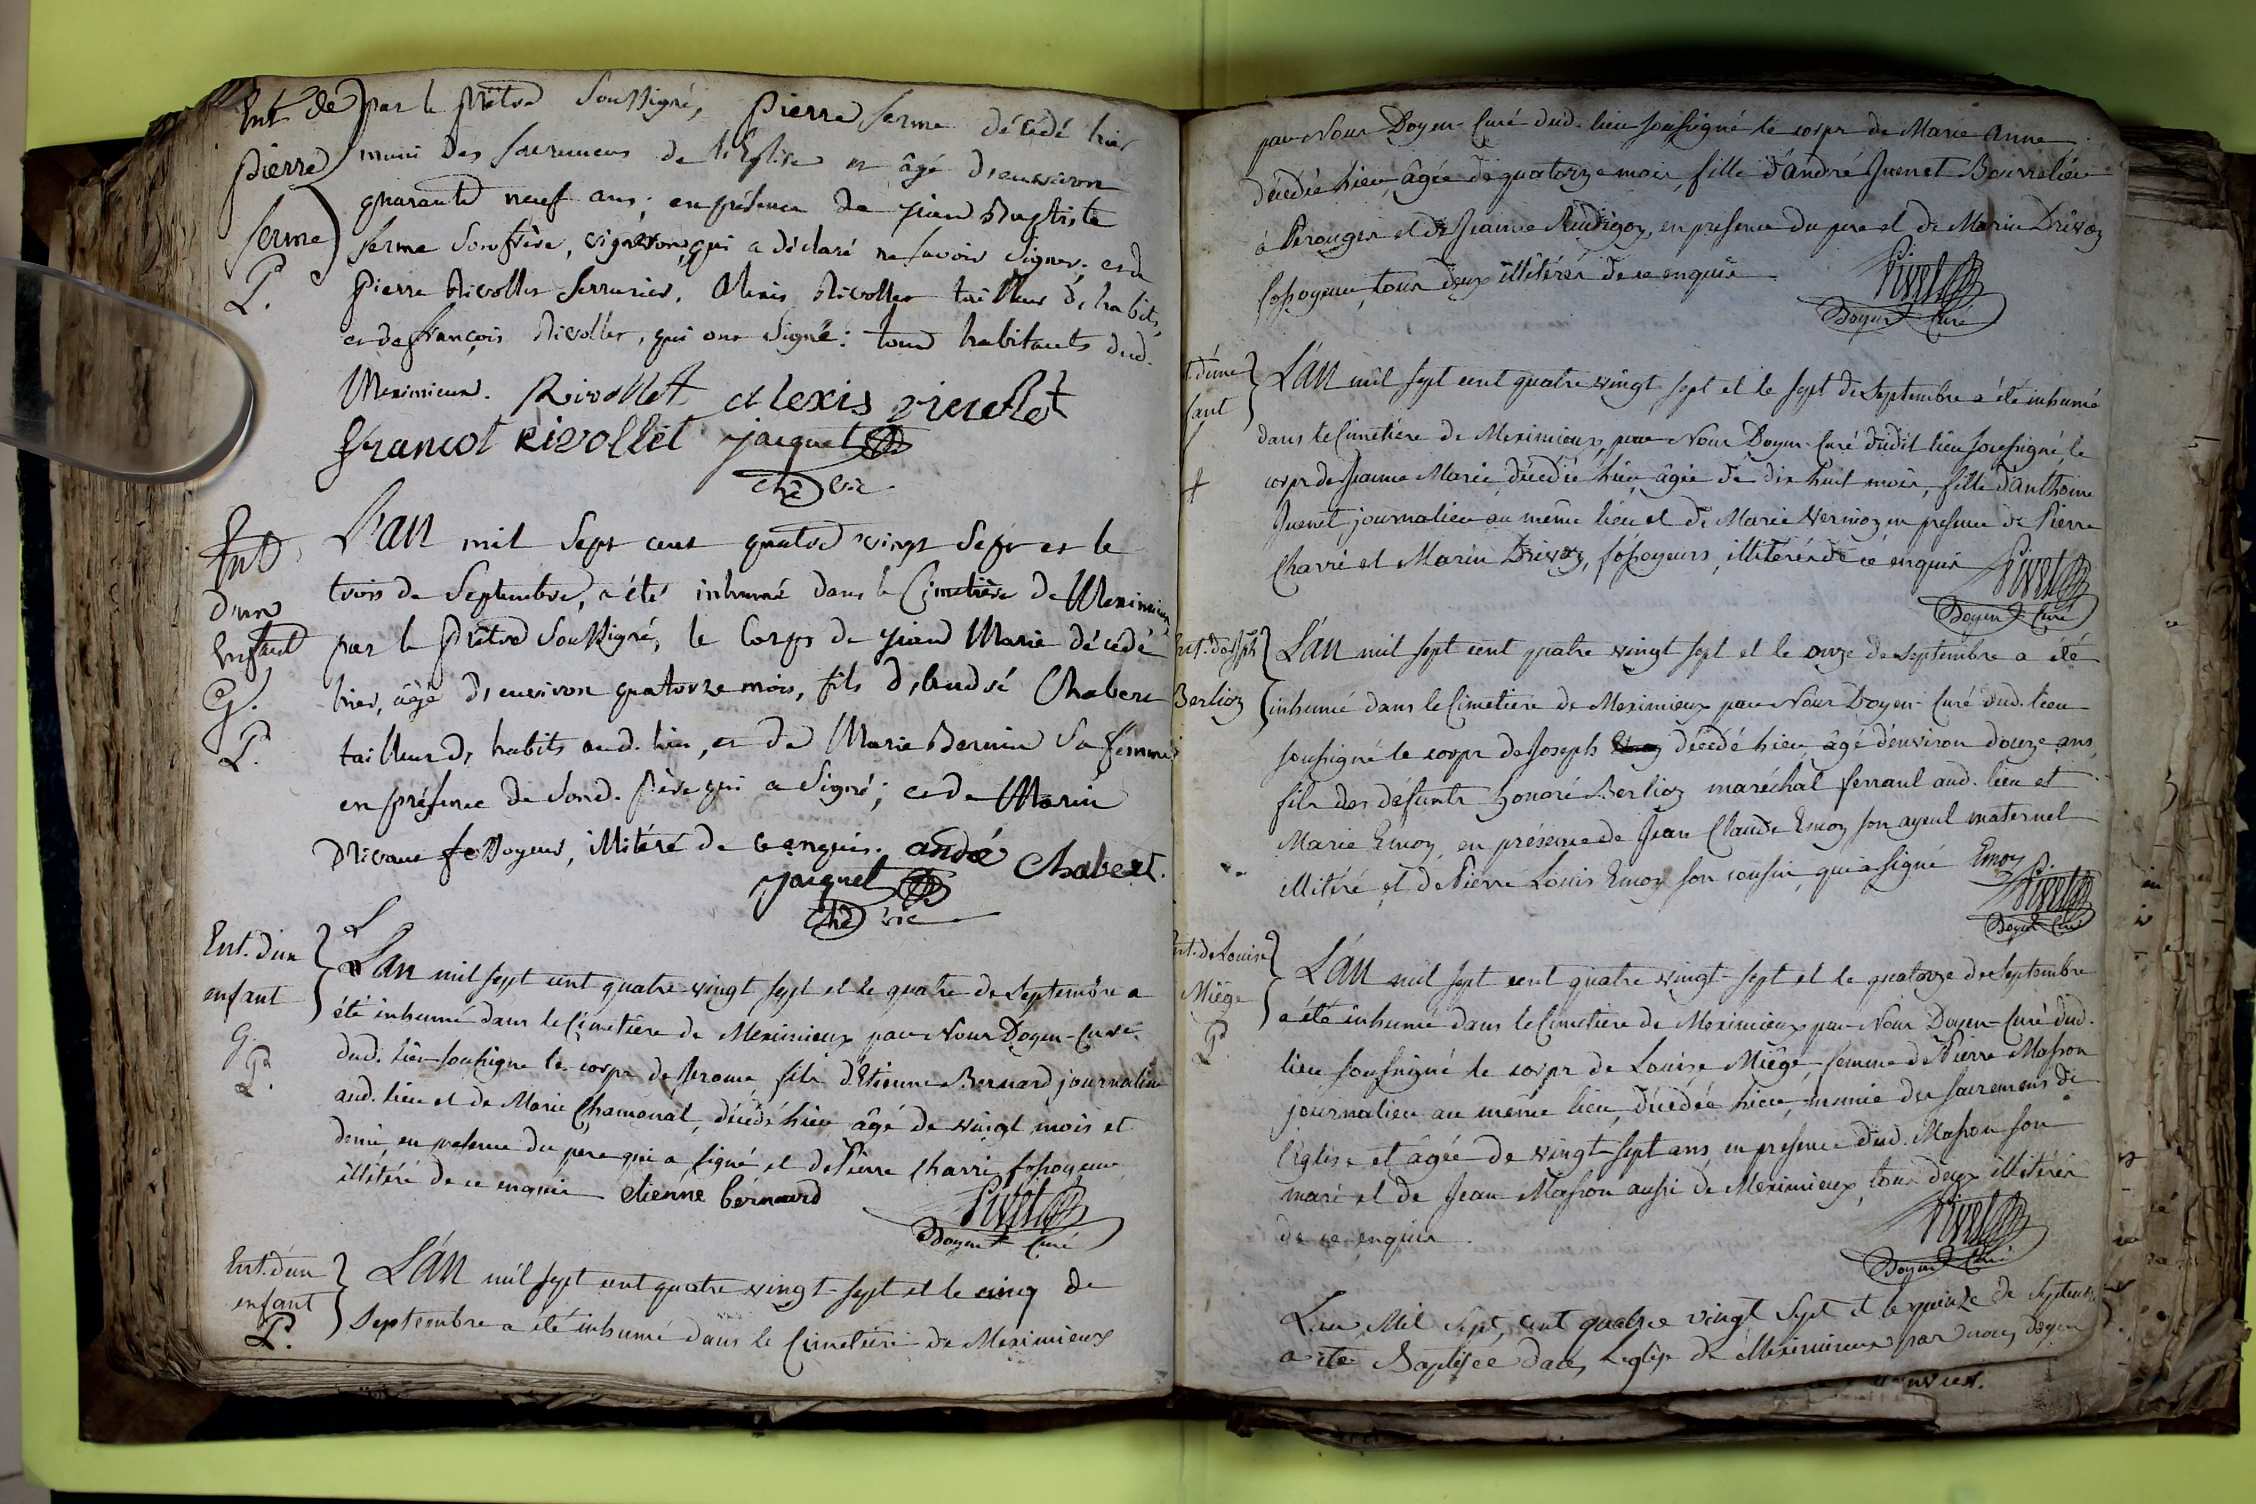 Ent de
Pierre
Serme
P.
par le Prêtre soussigné, Pierre Serme décédé hier
muni des sacremens de l'Eglise et âgé d'environ
quarante neuf ans; en présence de Jean Baptiste
Serme son frère, vigneron, qui a déclaré ne savoir signer; et de
Pierre Rivollet serrurier, Alexis Rivollet tailleur d'habits,
et de françois Rivollet, qui ont signé: tous habitants dud.
Meximieux. Rivollet alexis rivollet
francot Rivollet Jacquet
che vic
Ent
d'un
Enfant
G.
P.
L'an mil sept cent quatre vingt sept et le
trois de Septembre, a été inhumé dans le Cimetière de Meximieux
par le Prêtre soussigné, le Corps de Jean Marie décédé
hier, âgé d'environ quatorze mois, fils d'André Chabert
tailleur d'habits aud. lieu, et de Marie Bernin sa femme
en présence de sond. Père qui a signé; et de Marin
Drivaux fossoyeur, illitéré de ce enquis. andé Chabert.
Jacquet
che vic
Ent. d'un
enfant
G.
P.
L'an mil sept cent quatre vingt sept et le quatre de Septembre a
été inhumé dans le Cimetière de Meximieux par Nous Doyen-Curé
dud. lieu soussigné le corps de Jerome fils d'Etienne Bernard journalier
aud. lieu et de Marie Chamonal, décédé hier âgé de vingt mois et
demi, en présence du père qui a signé et de Pierre Charri, fossoyeur
illitéré de ce enquis etienne bernard
Pivet
Doyen Curé
Ent. d'un
enfant
P.
L'an mil sept cent quatre vingt-sept et le cinq de
Septembre a été inhumé dans le Cimetière de Meximieux
par Nous Doyen-Curé dud. lieu soussigné le corps de Marie Anne
décédée hier, âgée de quatorze mois, fille d'andré Juenet Bourrelier
à Pérouges et de Jeanne Rudigoz, en presence du pere et de Marin Drivoz
fossoyeur, tous deux illitérés de ce enquis
Pivet
Doyen Curé
t. d'une
fant
L'an mil sept cent quatre vingt-sept et le sept de Septembre a été inhumé
dans le Cimetière de Meximieux, par Nous Doyen-Curé dudit lieu soussigné le
corps de Jeanne Marie, décédée hier, âgée de dix huit mois, fille d'anthoine
Juenet journalier au même lieu et de Marie Vernoz en presence de Pierre
Charri et Marin Drivoz, fossoyeurs, illitérés de ce enquis
Pivet
Doyen Curé
nt. de Jph
Berlioz
L'an mil sept cent quatre vingt sept et le onze de Septembre a été
inhumé dans le Cimetière de Meximieux par Nous Doyen-Curé dud. lieu
soussigné le corps de Joseph décédé hier âgé d'environ douze ans,
fils des défunts honoré Berlioz maréchal ferrant aud. lieu et
Marie Emoz, en présence de Jean Claude Emoz son ayeul maternel
illitéré et de Pierre Louis Emoz son cousin, qui a signé Emoz
Pivet
Doyen Curé
nt. de Louise
Miége
P.
L'an mil sept cent quatre vingt-sept et le quatorze de Septembre
a été inhumé dans le Cimetière de Meximieux par Nous Doyen-Curé dud.
lieu soussigné le corps de Louise Miége, femme de Pierre Masson
journalier au même lieu, décédée hier, munie des sacremens de
l'église et âgée de vingt-sept ans, en presence dud. Masson son
mari et de Jean Masson aussi de Meximieux, tous deux illitérés
de ce enquis.
Pivet
Doyen Curé
L'an Mil sept cent quatre vingt sept et le quinze de septembre
a été Baptisée dans l'eglise de Meximieux par nous doyen